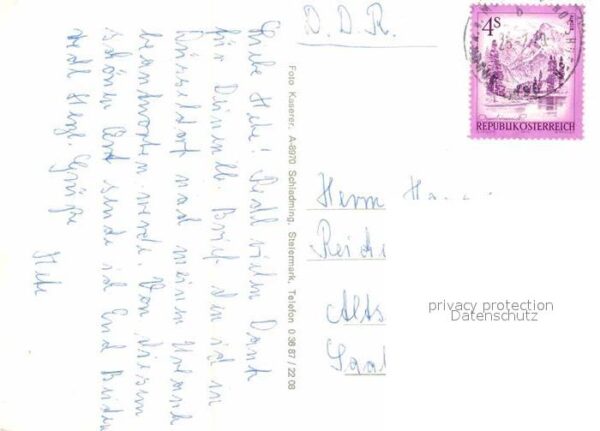 Liebe Hete! Recht vielen Dank
für Deinen lb. Brief den ich in
Düsseldorf nach meinem Urlaub
beantworten werde. Von diesem
schönen Ort sende ich Euch Beiden
recht herzl. Grüße
Hete
Foto Kaserer, A-8970 Schladming, Steiermark, Telefon 0 36 87 / 22 08
D. D. R.
4S
REPUBLIK ÖSTERREICH
Herrn Ha
Reich
Alts
Saal
privacy protection
Datenschutz